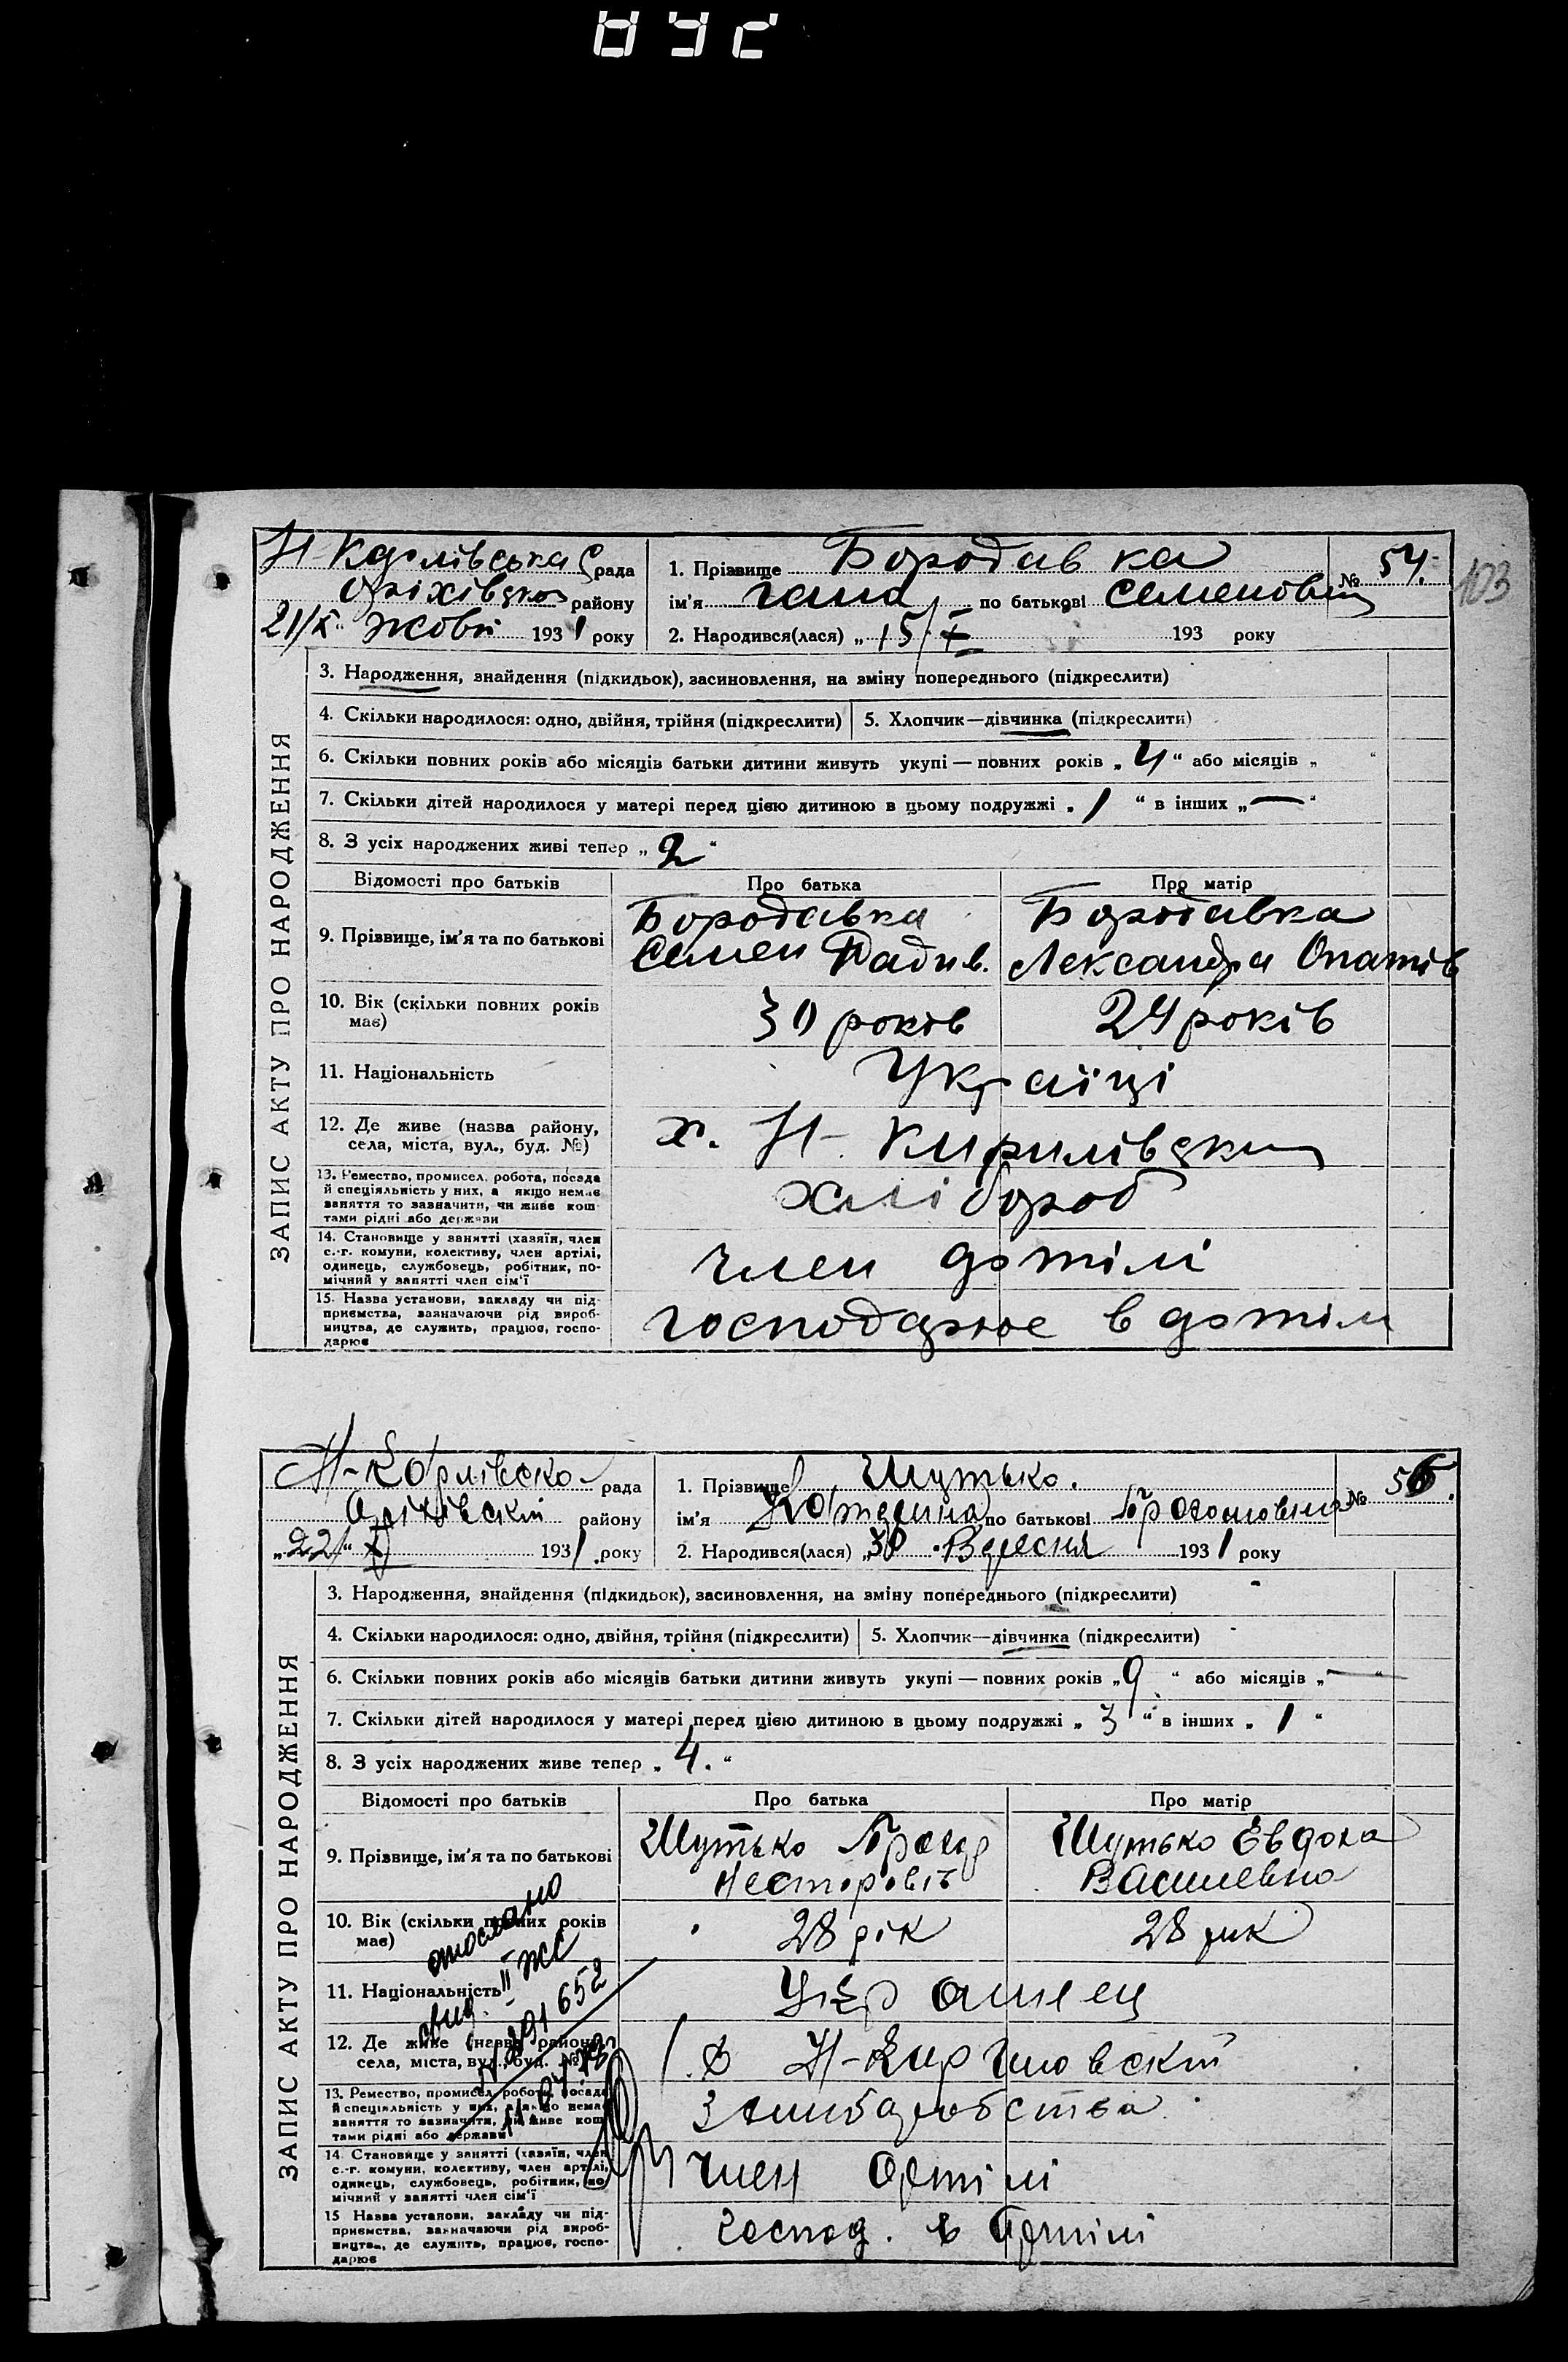 Н-Карлівська С рада
Оріхівськ району
21/X " Жовт 1931 року
1. Прізвище Бородавка
№ 54.
103
ім'я Гала по батькові Семеновна
2. Народився(лася) „ 15/X 193 року
ЗАПИС АКТУ ПРО НАРОДЖЕННЯ
3. Народження, знайдення (підкидьок), засиновлення, на зміну попереднього (підкреслити)
4. Скільки народилося: одно, двійня, трійня (підкреслити)
5. Хлопчик—дівчинка (підкреслити)
6. Скільки повних років або місяців батьки дитини живуть укупі — повних років „ 4 “ або місяців „ “
7. Скільки дітей народилося у матері перед цією дитиною в цьому подружжі „ 1 “ в інших „ — “
8. З усіх народжених живі тепер „ 2 “
Відомості про батьків
Про батька
Про матір
9. Прізвище, ім'я та по батькові
Бородавка
Семен
Бородавка
Лександра
10. Вік (скільки повних років
має)
30 років
24 років
11. Національність
Україці
12. Де живе (назва району,
села, міста, вул., буд. №)
х. Н-Кирилівськи
13. Ремество, промисел, робота, посада
й спеціяльність у них, а якщо немає
заняття то зазначити, чи живе кош-
тами рідні або держави
хлібороб
14. Становище у занятті (хазяїн, член
с.-г. комуни, колективу, член артілі,
одинець, службовець, робітник, по-
мічний у занятті член сім'ї
член артілі
15. Назва установи, закладу чи під-
приємства, зазначаючи рід вироб-
ництва, де служить, працює, госпо-
дарює
господарює в артіли
Н-Карлівска рада
Оріхівский району
„ 22 “ X 1931 року
1. Прізвище Шутько.
№ 56.
ім'я Катерина по батькові Прохоровна
2. Народився(лася) „ 30 Вересня 1931 року
ЗАПИС АКТУ ПРО НАРОДЖЕННЯ
3. Народження, знайдення (підкидьок), засиновлення, на зміну попереднього (підкреслити)
4. Скільки народилося: одно, двійня, трійня (підкреслити)
5. Хлопчик—дівчинка (підкреслити)
6. Скільки повних років або місяців батьки дитини живуть укупі — повних років „ 9 “ або місяців „ — “
7. Скільки дітей народилося у матері перед цією дитиною в цьому подружжі „ 3 “ в інших „ 1 “
8. З усіх народжених живе тепер „ 4. “
Відомості про батьків
Про батька
Про матір
9. Прізвище, ім'я та по батькові
Шутько Прохор
Несторовіч
Шутько Євдоха
Василевна
10. Вік (скільки повних років
має)
28 рік
28 рик
11. Національність
Українец
12. Де живе (назва району,
села, міста, вул., буд. №)
Н-Кирилловский
13. Ремество, промисел, робота, посада
й спеціяльність у них, а якщо немає
заняття то зазначити, чи живе кош-
тами рідні або держави
14. Становище у занятті (хазяїн, член
с.-г. комуни, колективу, член артілі,
одинець, службовець, робітник, по-
мічний у занятті член сім'ї
Член Артілі
15. Назва установи, закладу чи під-
приємства, зазначаючи рід вироб-
ництва, де служить, працює, госпо-
дарює
Господ. в Артілі
отослано
свид. II ЖС